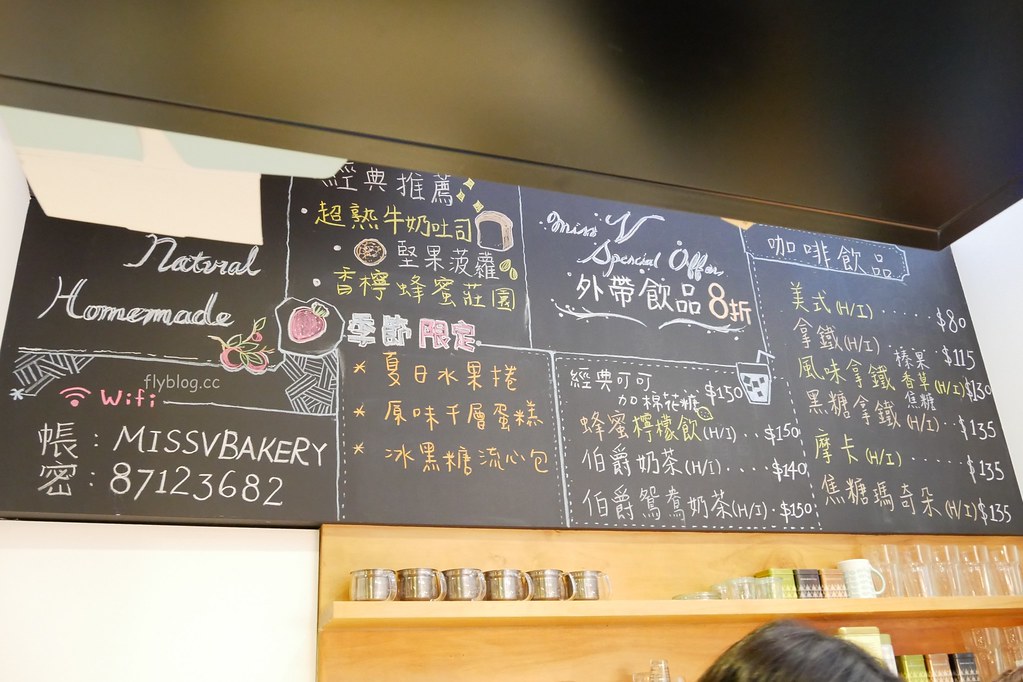 Natural
Homemade
flyblog.cc
Wifi
帳：MISSVBAKERY
密：87123682
經典推薦
超熟牛奶吐司
堅果菠蘿
香檸蜂蜜莊園
季節限定
* 夏日水果捲
* 原味千層蛋糕
* 冰黑糖流心包
Miss V
Spercial Offer
外帶飲品8折
經典可可
加棉花糖 $150
蜂蜜檸檬飲(H/I)....$150
伯爵奶茶(H/I)....$140
伯爵鴛鴦奶茶(H/I).$150
咖啡飲品
美式(H/I).......$80
拿鐵(H/I).......$115
風味拿鐵 榛果 香草 焦糖 (H/I)$130
黑糖拿鐵(H/I)...$135
摩卡(H/I).......$135
焦糖瑪奇朵(H/I)$135